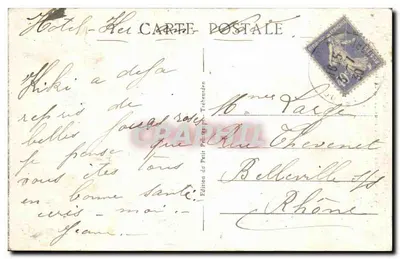 Hôtel Ker
CARTE POSTALE
Kiki a deja
repris de
belles joues roses
je pense que
vous êtes tous
en bonne santé
ecris-moi...
Jeanne..
Edition du Petit
Mmes Large
Rue Thevenet
Belleville s/s
Rhône